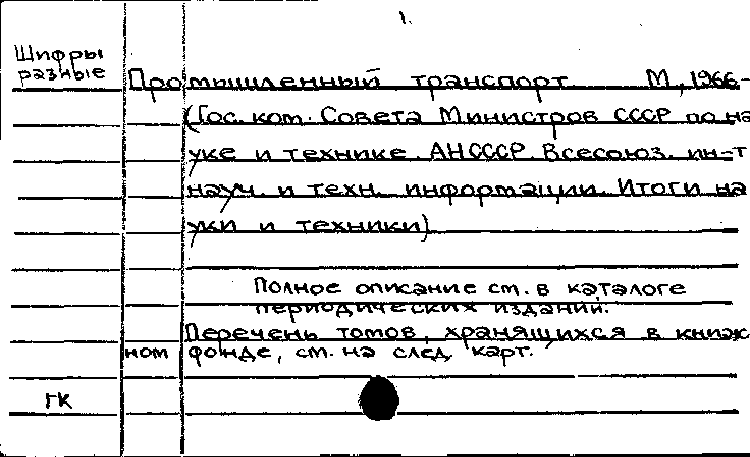 1.
Шифры
разные
Промышленный транспорт М., 1966-
(Гос. ком. Совета Министров СССР по на
уке и технике. АН СССР. Всесоюз. ин-т
науч. и техн. информации. Итоги на
уки и техники)
Полное описание см. в каталоге
периодических изданий.
Перечень томов, хранящихся в книж
ном фонде, см. на след. карт.
ГК